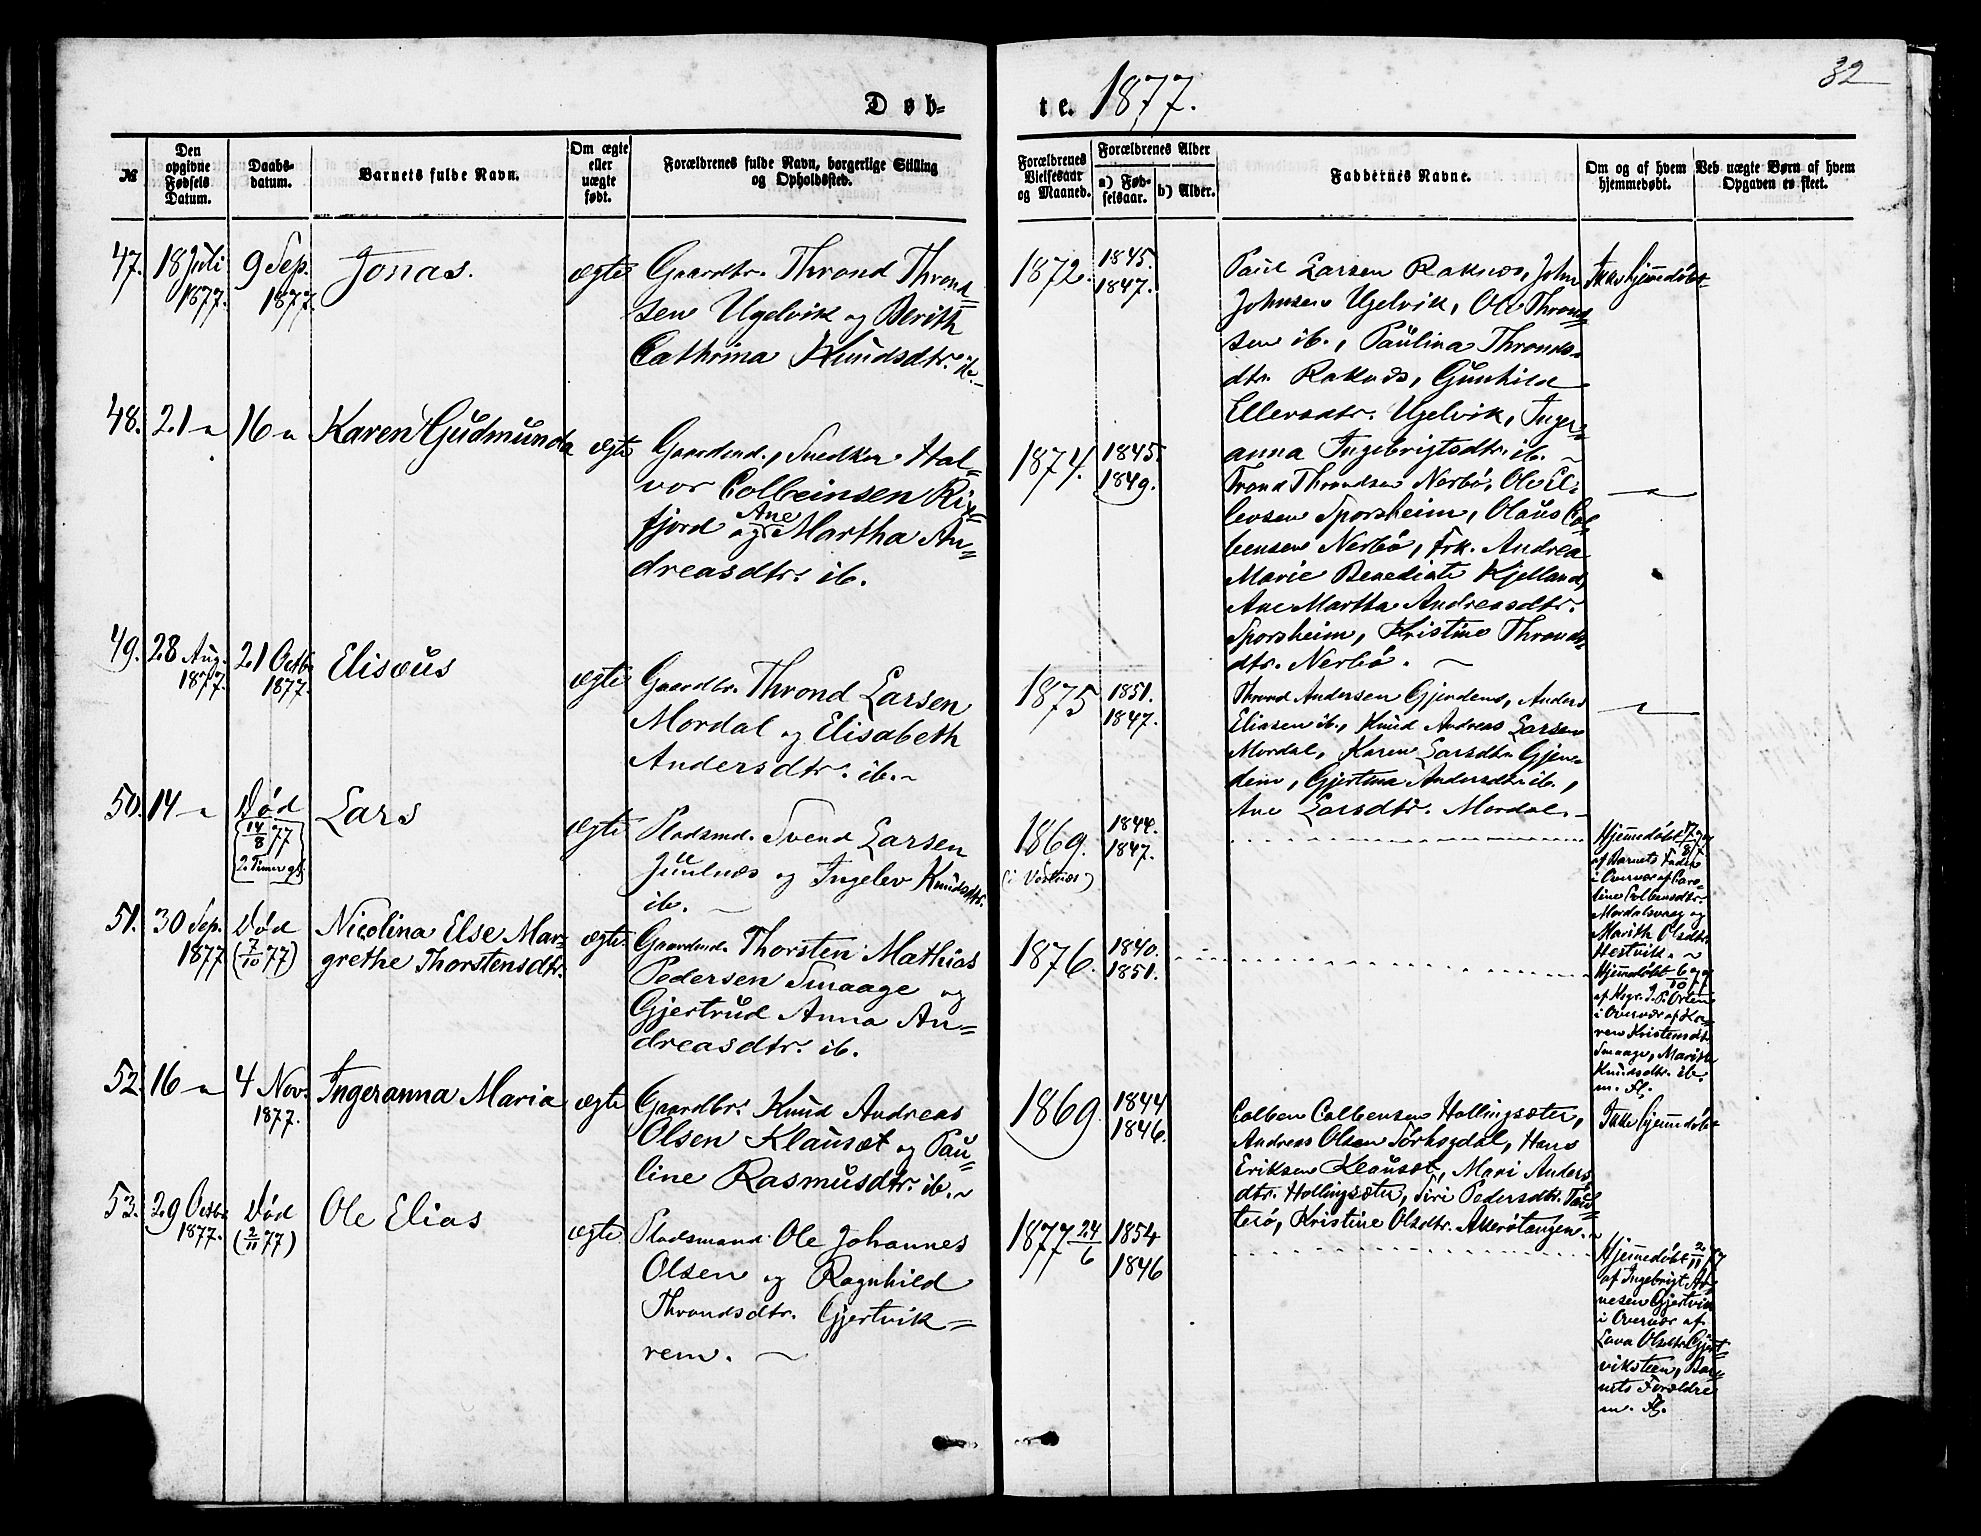 32
Døb-
te. 1877.
№
Den opgivne Fødsels Datum.
Daabs-datum.
Barnets fulde Navn.
Om ægte eller uægte født.
Forældrenes fulde Navn, borgerlige Stilling og Opholdsted.
Forældrenes Vielsesaar og Maaned.
Forældrenes Alder
a) Fødselsaar.
b) Alder.
Faddernes Navne.
Om og af hvem hjemmedøbt.
Ved uægte Børn af hvem Opgaven er skeet.
47. 18 Juli 1877. 9 Sep. 1877. Jonas. ægte
Gaardbr. Thrond Thrond=
sen Ugelvik og Berith
Cathrina Knudsdtr. ib.
1872. 1845. 1847.
Paul Larsen Raknæs, John
Johnsen Ugelvik, Ole Thrond=
sen ib., Paulina Thronds-
dtr. Raknæs, Gunhild
Ellersdtr. Ugelvik, Inger=
anna Ingebrigtsdtr. ib.
Ikke hjemmedøbt
48. 21 " 16 " Karen Gudmunda ægte
Gaardmd., Snedker Hal=
vor Colbeinsen Rix=
fjord og Ane Martha An=
dreasdtr. ib.
1874. 1845. 1849.
Trond Throndsen Nerbø, Ole El=
levsen Sporsheim, Olaus Col=
bensen Nerbø, Frk. Andrea
Marie Benedicte Kjelland,
Ane Martha Andreasdtr.
Sporsheim, Kristine Thronds=
dtr. Nerbø.
"
49. 28 Aug. 1877. 21 Octbr 1877. Elisæus ægte
Gaardbr. Thrond Larsen
Mordal og Elisabeth
Andersdtr. ib.
1875 1851. 1847.
Thrond Andersen Gjendem, Anders
Eliasen ib., Knud Andreas Larsen
Mordal, Karen Larsdtr. Gjen=
dem, Gjertina Andersdtr. ib.,
Ane Larsdtr. Mordal.
"
50. 14 " Død (14/8 77 2 Timer gl.) Lars ægte
Pladsmd. Svend Larsen
Juulnæs og Ingelev Knudsdtr.
ib.
1869. 1844. 1847.
(i Vestnæs)
Hjemmedøbt
af Barnets Fader
i Overvær af Caro=
line Colbensdtr.
Mordalsvaag og
Marith Olsdtr.
Hestvik.
51. 30 Sep. 1877 Død (7/10 77) Nicolina Else Mar=
grethe Thorstensdtr. ægte.
Gaardmd. Thorsten Mathias
Pedersen Smaage og
Gjertrud Anna An=
dreasdtr. ib.
1876. 1840. 1851.
Hjemmedøbt 6/10 77
af Kgr. J. P. Orten
i Overvær af Ka=
ren Kristensdtr.
Smaage, Marith
Knudsdtr. ib.
m. Fl.
52. 16 " 4 Nov. 1877. Ingeranna Maria ægte
Gaardbr. Knud Andreas
Olsen Klauset og Pau=
line Rasmusdtr. ib.
1869 1844 1846.
Colben Colbensen Hollingsæter,
Andreas Olsen Torhogdal, Hans
Eriksen Klauset, Mari Anders
dtr. Hollingsæter, Siri Pedersdtr.
Kristine Olsdtr.
Ikke hjemmedøbt
53. 29 Octbr 1877. Død (2/11 77) Ole Elias ægte.
Pladsmand Ole Johannes
Olsen og Ragnhild
Throndsdtr. Gjertvik=
rem.
1877 24/6 1854 1846
Hjemmedøbt 2/11 77
af Ingebrigt Ar=
nesen Gjertvik
i Overvær af
Lava Olsdtr. Gjert=
viksteen, Bar=
nets Forældre
m. Fl.